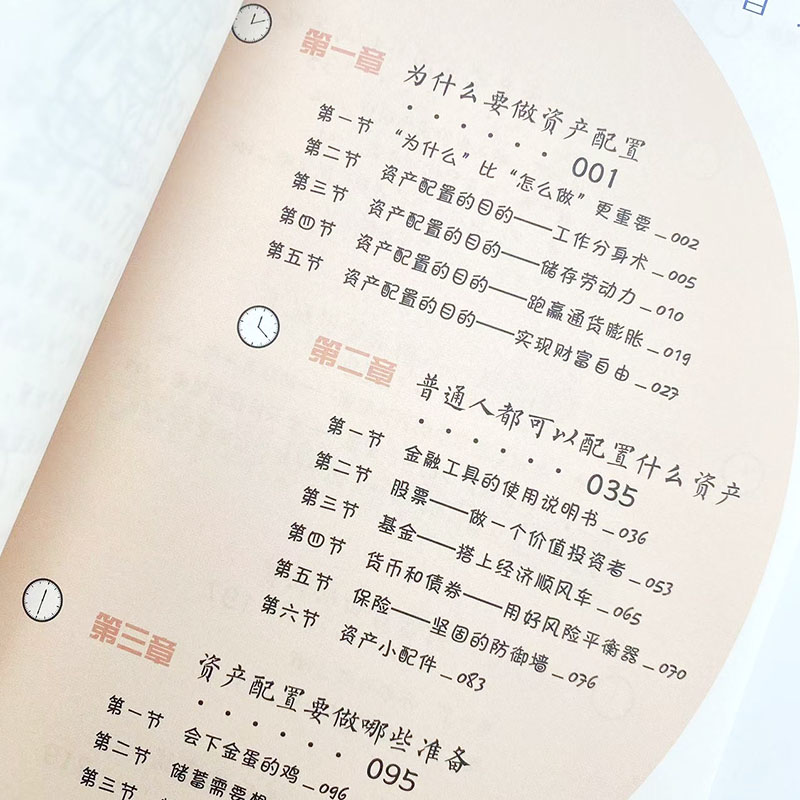 目
第一章 为什么要做资产配置
······ 001
第一节 “为什么”比“怎么做”更重要_002
第二节 资产配置的目的——工作分身术_005
第三节 资产配置的目的——储存劳动力_010
第四节 资产配置的目的——跑赢通货膨胀_019
第五节 资产配置的目的——实现财富自由_027
第二章 普通人都可以配置什么资产
······ 035
第一节 金融工具的使用说明书_036
第二节 股票——做一个价值投资者_053
第三节 基金——搭上经济顺风车_065
第四节 货币和债券——用好风险平衡器_070
第五节 保险——坚固的防御墙_076
第六节 资产小配件_083
第三章 资产配置要做哪些准备
······ 095
第一节 会下金蛋的鸡_096
第二节 储蓄需要
第三节